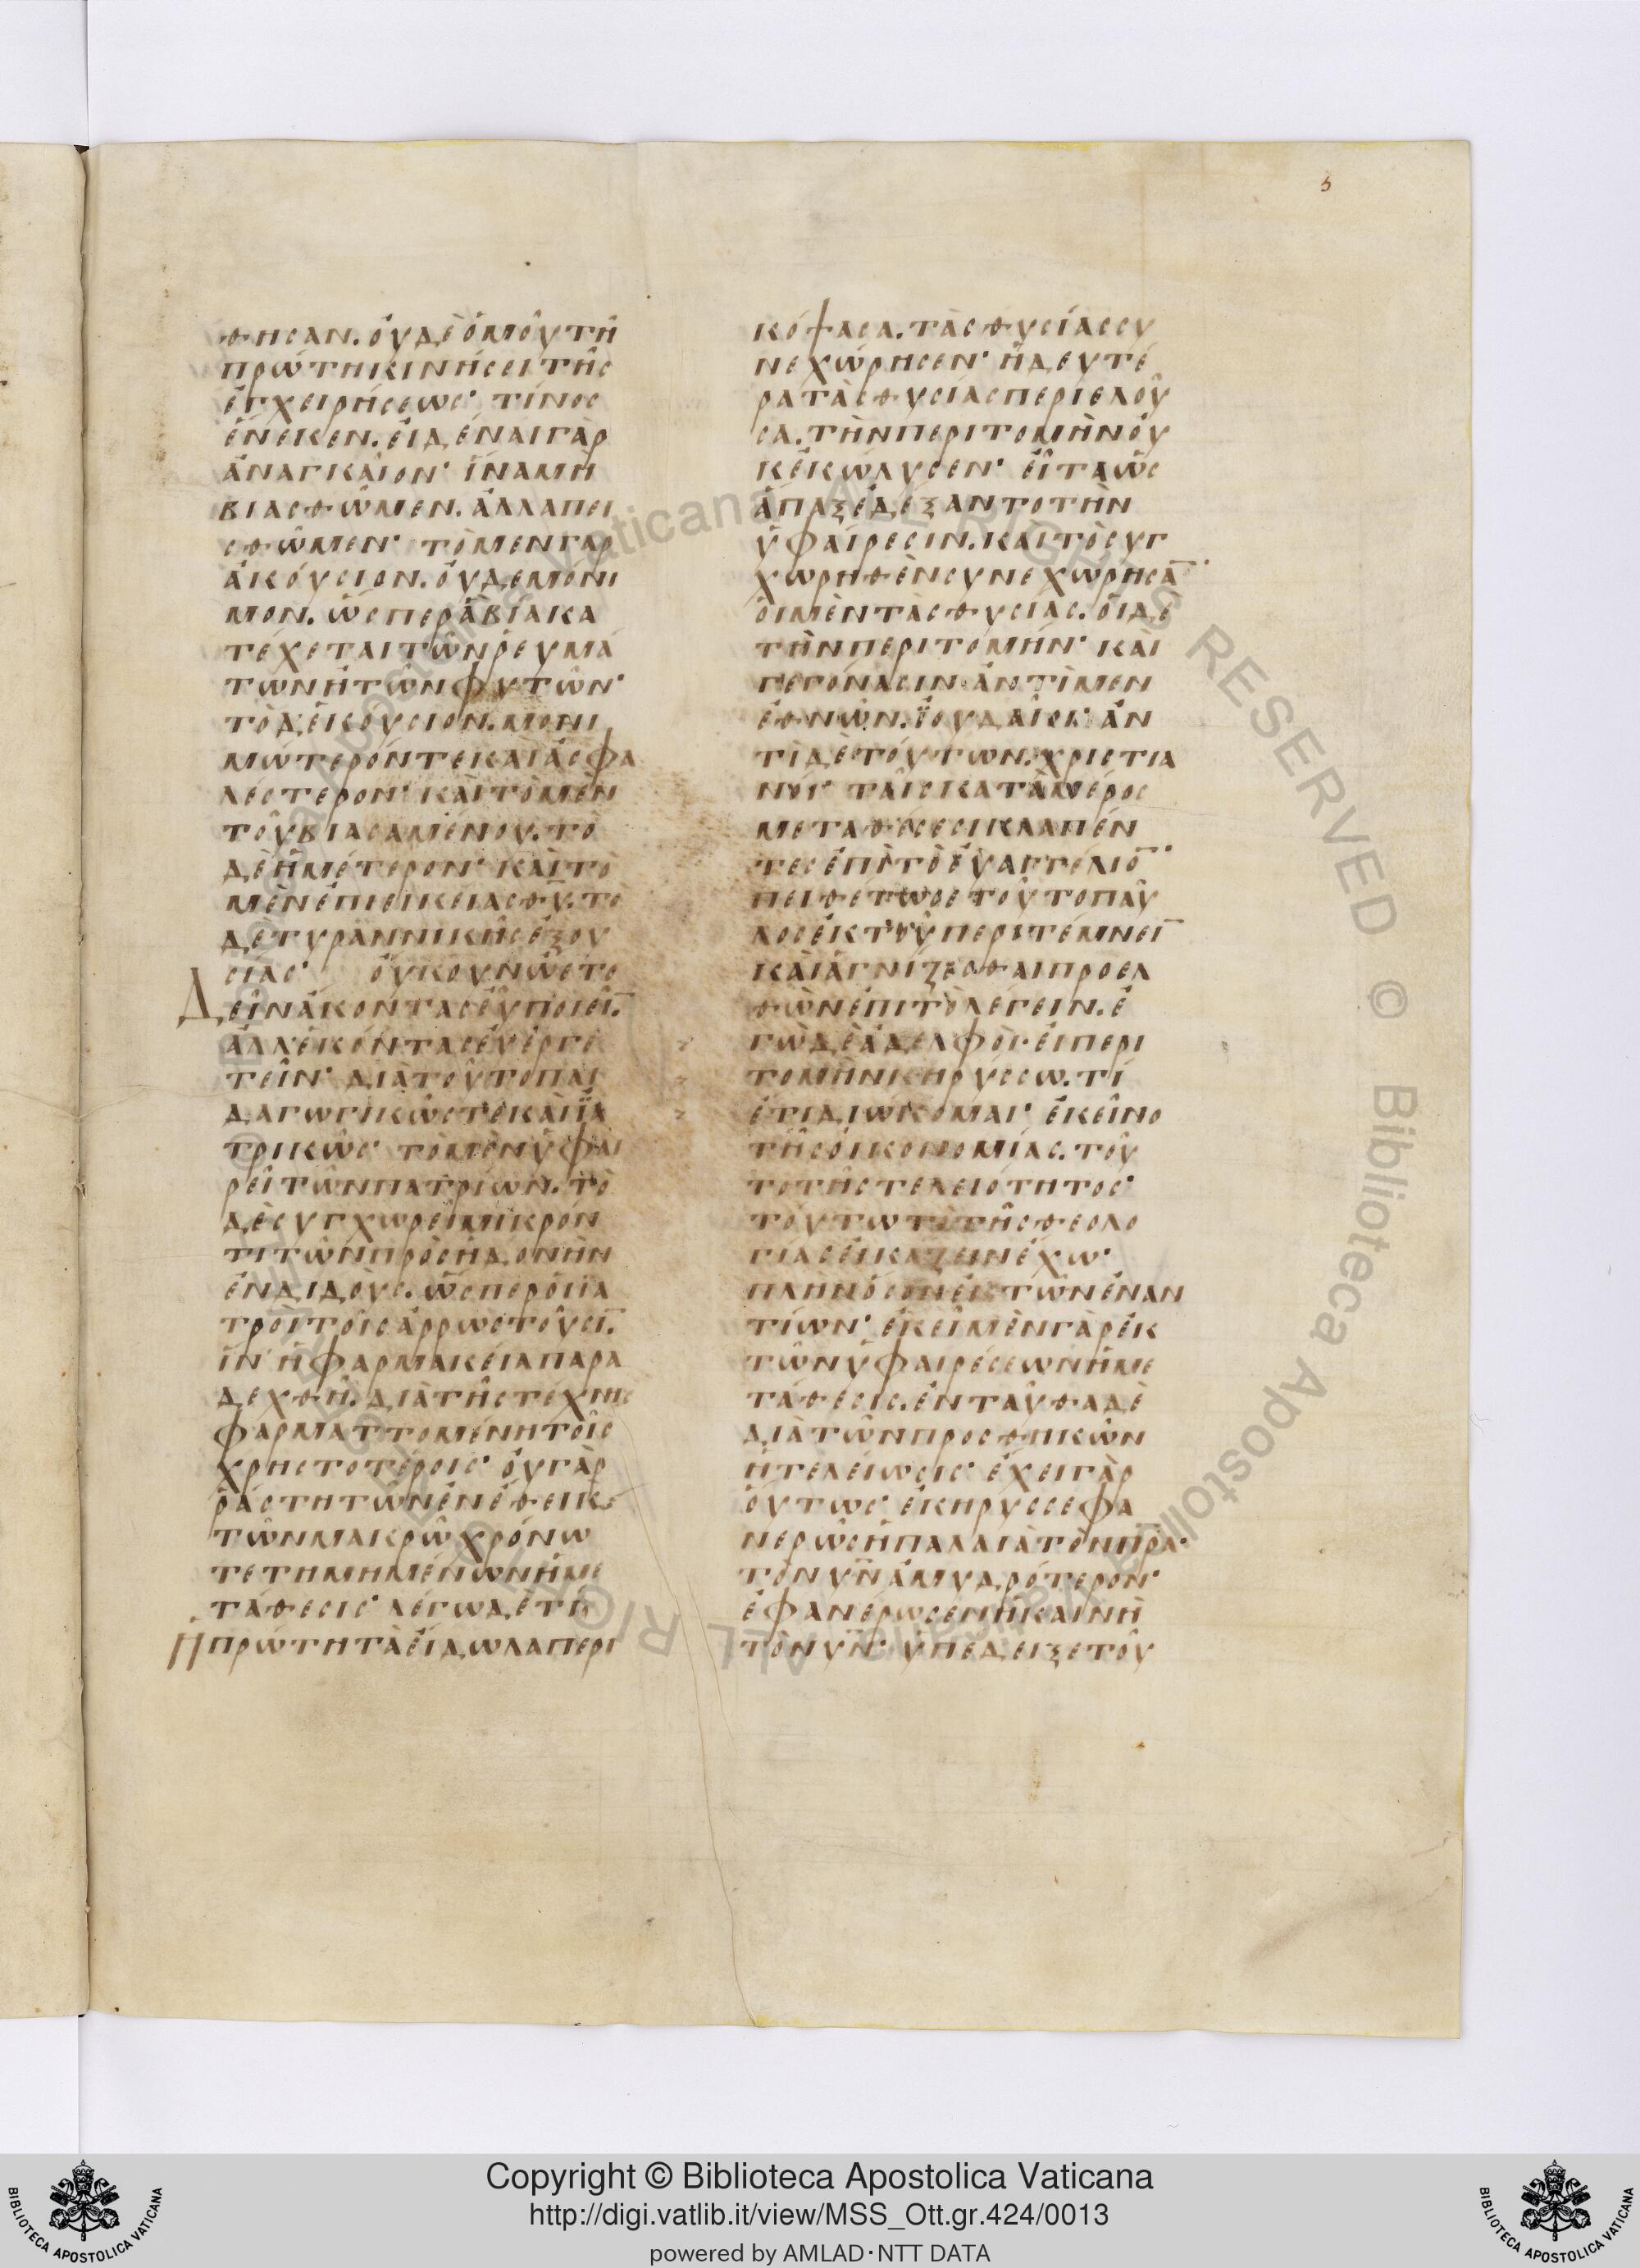 5
θησαν. ὀυδὲ ὁμοῦ τῆ
πρώτηι κινήσει τῆς
ἐγχειρήσεως· τίνος
ἕνεκεν. ἐιδέναι γὰρ
ἀναγκαῖον· ἵνα μὴ
βιασθῶμεν. ἀλλα πει
σθῶμεν· τὸ μεν γαρ
ἀκόυσιον. ὀυδε μόνι
μον. ὥσπερ ἃ βίαι κα
τέχεται τῶν ῥευμά
των ἢ τῶν φυτῶν·
τὸ δ ἑκουσιον. μονι
μώτερόν τε καὶ ἀσφα
λέστερον· καὶ τὸ μὲν
τοῦ βιασαμένου. τὸ
δὲ ἡμέτερον· καὶ τὸ
μὲν ἐπιεικείας θυ. το
δὲ τυραννικῆς ἐξου
σίας· ὀυκουν ὤετο
δεῖν ἄκοντας ἐυποιεῖ̅.
ἀλλ ἑκόντας ἐυεργε
τεῖν· δια τοῦτο παι
δαγωγικῶς τε καὶ ϊα
τρικῶς τὸ μὲν ὑφαι
ρεῖ τῶν πατρίων. τὸ
δὲ συγχωρεῖ μικρόν
τι τῶν πρὸς ἡδονὴν
ἐνδιδοὺς. ὥσπερ ὁι ϊα
τροὶ τοῖς ἀρρωστοῦσι̅.
ἵν ἡ φαρμακεία παρα
δεχθῆ. διὰ τῆς τέχνης
φαρματτομένη τοῖς
χρηστοτέροις· ὀυ γὰρ
ῥάστη τῶν ἐν ἔθει κ
τῶν μακρῶ χρόνω
τετημημένων ἡ με
τάθεσις· λέγω δὲ τί
Ἡ πρώτη τὰ ἔιδωλα περι
κόψασα. τὰς θυσίας συ
νεχώρησεν· ἡ δευτέ
ρα τὰς θυσίας περιελοῦ
σα. τὴν περιτομὴν ὀυ
κ ἐκώλυσεν· ἐῖτα ὡς
ἅπαξ ἐδέξαντο τὴν
ὑφαίρεσιν. και τὸ συγ
χωρηθὲν συνεχωρησα̅·
ὁι μὲν τὰς θυσίας. ὁι δὲ
τὴν περιτομήν· καὶ
γεγόνασιν ἀντὶ μεν
ἐθνῶν. ϊουδαῖοι· ἀν
τὶ δὲ τούτων. χριστια
νοί· ταῖς κατὰ μέρος
μεταθέσεσι κλαπέν
τες ἐπὶ τὸ ἐυαγγέλιο̅·
πειθέτω σε τοῦτο παῦ
λος ἐκ τοῦ περιτέμνει̅
καὶ ἁγνίζεσθαι προελ
θὼν ἐπι τὸ λέγειν. ἐ
γὼ δὲ ἀδελφοὶ· ἐι περι
τομὴν κηρύσσω. τί
ἔτι διώκομαι· ἐκεῖνο
τῆς ὀικονομίας. τοῦ
το τῆς τελειότητος·
τούτω τὸ τῆς θεολο
γίας ἐικάζειν ἔχω·
πλὴν ὅσον ἐκ τῶν ἐναν
τίων· ἐκεῖ μὲν γὰρ ἐκ
τῶν ὑφαιρέσεων ἡ με
τάθεσις. ἐνταῦθα δὲ
διὰ τῶν προσθηκῶν
ἡ τελείωσις· ἔχει γὰρ
οὕτως· ἐκήρυσσε φα
νερῶς ἡ παλαιὰ τὸν π̅ρ̅α·
τὸν υ̅ν̅ ἀμυδρότερον·
ἐφανέρωσεν ἡ καινὴ
τὸν υ̅ν̅· ὑπέδειξε τοῦ
Copyright © Biblioteca Apostolica Vaticana
http://digi.vatlib.it/view/MSS_Ott.gr.424/0013
powered by AMLAD·NTT DATA
BIBLIOTECA APOSTOLICA VATICANA
BIBLIOTECA APOSTOLICA VATICANA